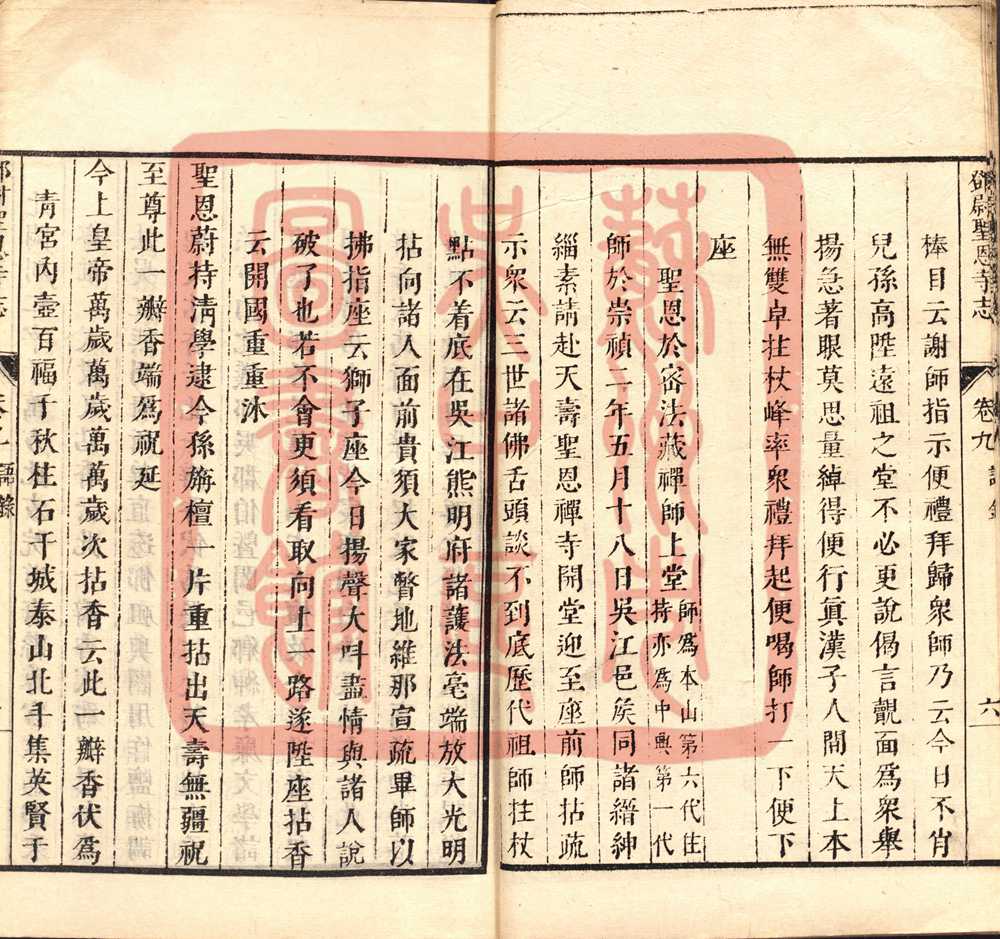 鄧尉聖恩寺志
卷九
語錄
六
棒目云謝師指示便禮拜歸衆師乃云今日不肖
兒孫高陞遠祖之堂不必更說偈言覿面爲衆舉
揚急著眼莫思量綽得便行眞漢子人間天上本
無雙卓拄杖峰率衆禮拜起便喝師打一下便下
座
聖恩於密法藏禪師上堂師爲本山第六代住
持亦爲中興第一代
師於崇禎二年五月十八日吳江邑矦同諸縉紳
緇素請赴天壽聖恩禪寺開堂迎至座前師拈疏
示衆云三世諸佛舌頭談不到底歷代祖師拄杖
點不着底在吳江熊明府諸護法毫端放大光明
拈向諸人面前貴須大家瞥地維那宣疏畢師以
拂指座云獅子座今日揚聲大呌盡情與諸人說
破了也若不會更須看取向上一路遂陞座拈香
云開國重重沐
聖恩蔚持淸學逮今孫旃檀一片重拈出天壽無疆祝
至尊此一瓣香端爲祝延
今上皇帝萬歲萬歲萬萬歲次拈香云此一瓣香伏爲
靑宮內壼百福千秋柱石干城泰山北斗集英賢于
聖恩寺志
語錄